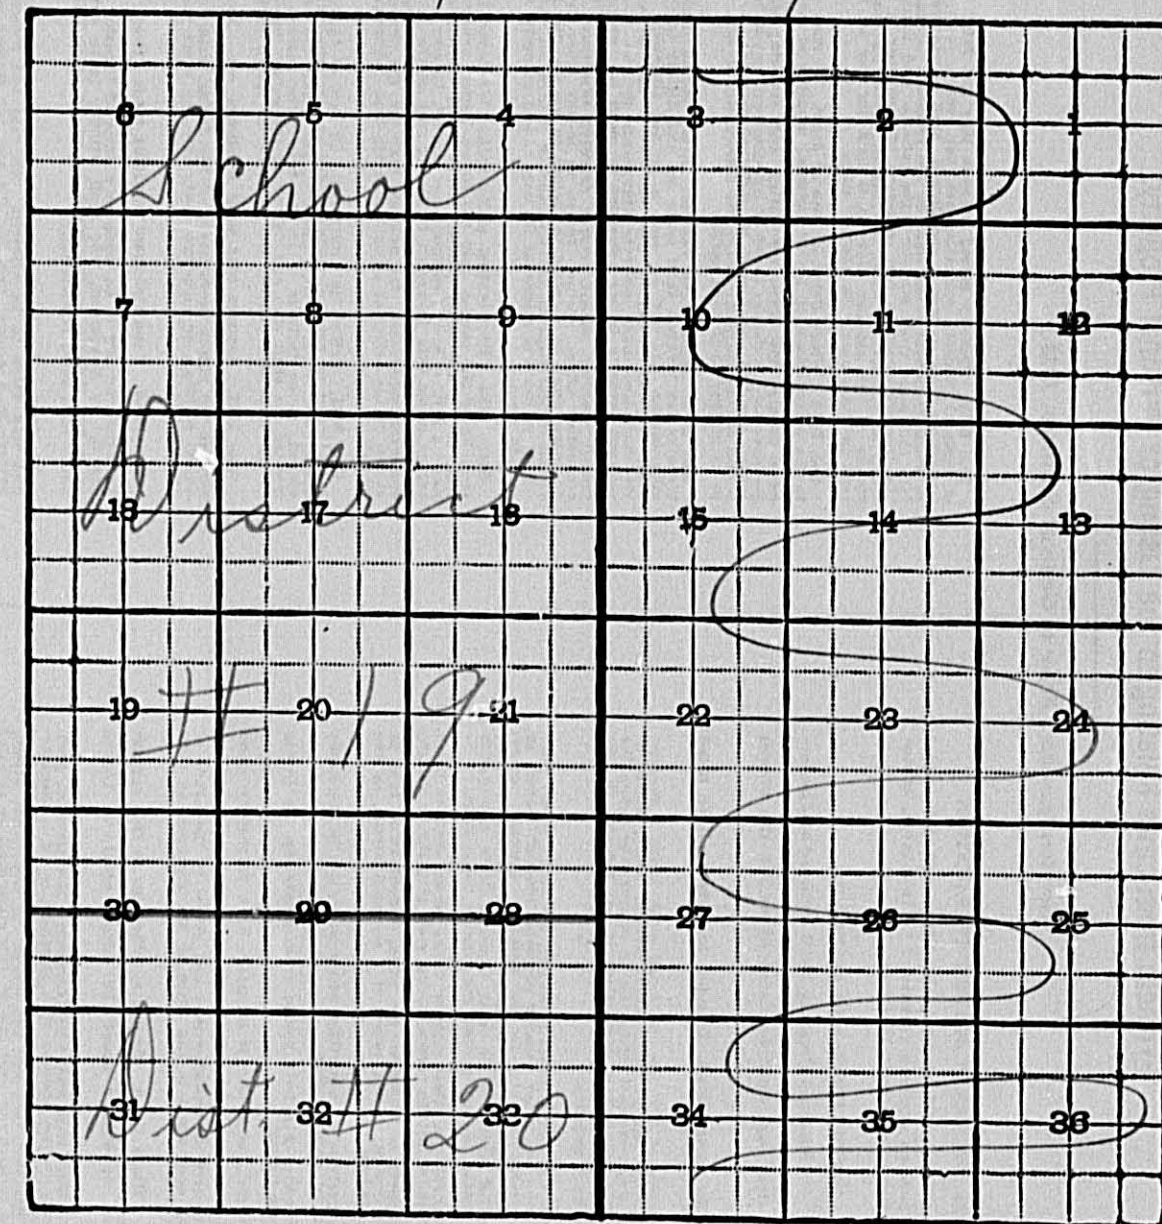 6 5 4 3 2 1
School
7 8 9 10 11 12
District
18 17 16 15 14 13
19 # 20 19 21 22 23 24
30 29 28 27 26 25
Dist. # 20
31 32 33 34 35 36